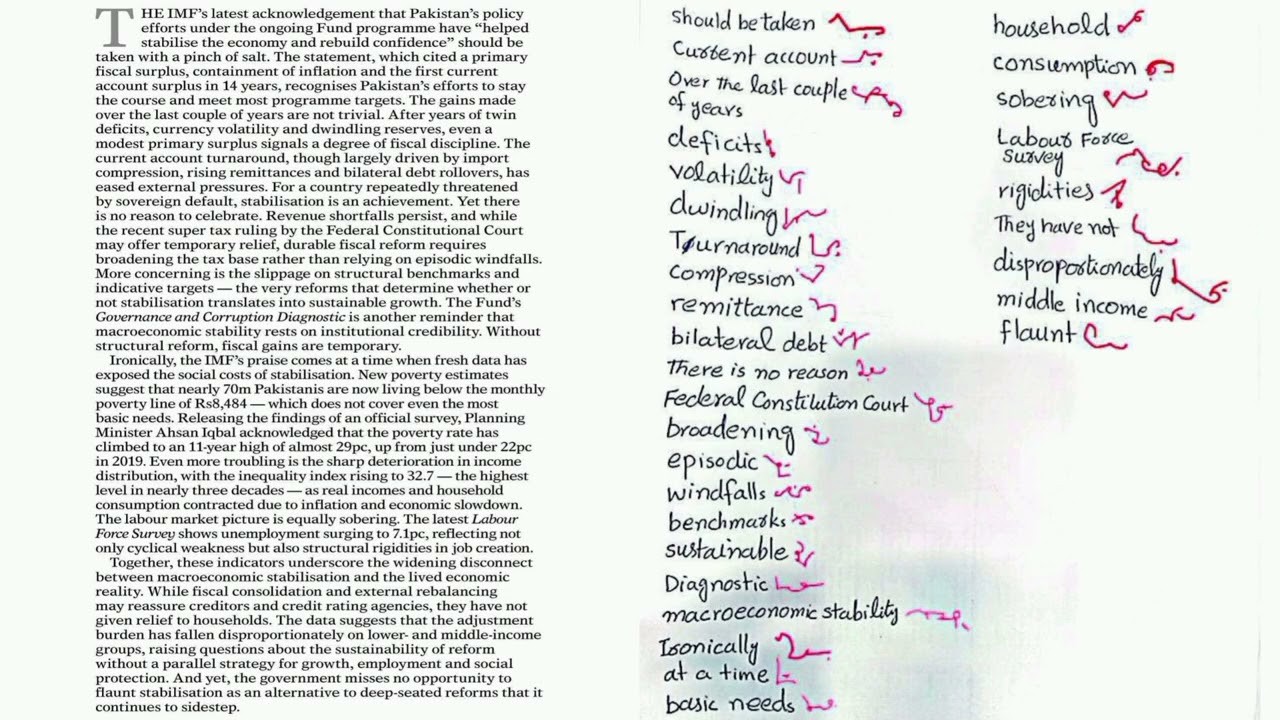 THE IMF's latest acknowledgement that Pakistan's policy
efforts under the ongoing Fund programme have "helped
stabilise the economy and rebuild confidence" should be
taken with a pinch of salt. The statement, which cited a primary
fiscal surplus, containment of inflation and the first current
account surplus in 14 years, recognises Pakistan's efforts to stay
the course and meet most programme targets. The gains made
over the last couple of years are not trivial. After years of twin
deficits, currency volatility and dwindling reserves, even a
modest primary surplus signals a degree of fiscal discipline. The
current account turnaround, though largely driven by import
compression, rising remittances and bilateral debt rollovers, has
eased external pressures. For a country repeatedly threatened
by sovereign default, stabilisation is an achievement. Yet there
is no reason to celebrate. Revenue shortfalls persist, and while
the recent super tax ruling by the Federal Constitutional Court
may offer temporary relief, durable fiscal reform requires
broadening the tax base rather than relying on episodic windfalls.
More concerning is the slippage on structural benchmarks and
indicative targets — the very reforms that determine whether or
not stabilisation translates into sustainable growth. The Fund's
Governance and Corruption Diagnostic is another reminder that
macroeconomic stability rests on institutional credibility. Without
structural reform, fiscal gains are temporary.
Ironically, the IMF's praise comes at a time when fresh data has
exposed the social costs of stabilisation. New poverty estimates
suggest that nearly 70m Pakistanis are now living below the monthly
poverty line of Rs8,484 — which does not cover even the most
basic needs. Releasing the findings of an official survey, Planning
Minister Ahsan Iqbal acknowledged that the poverty rate has
climbed to an 11-year high of almost 29pc, up from just under 22pc
in 2019. Even more troubling is the sharp deterioration in income
distribution, with the inequality index rising to 32.7 — the highest
level in nearly three decades — as real incomes and household
consumption contracted due to inflation and economic slowdown.
The labour market picture is equally sobering. The latest Labour
Force Survey shows unemployment surging to 7.1pc, reflecting not
only cyclical weakness but also structural rigidities in job creation.
Together, these indicators underscore the widening disconnect
between macroeconomic stabilisation and the lived economic
reality. While fiscal consolidation and external rebalancing
may reassure creditors and credit rating agencies, they have not
given relief to households. The data suggests that the adjustment
burden has fallen disproportionately on lower- and middle-income
groups, raising questions about the sustainability of reform
without a parallel strategy for growth, employment and social
protection. And yet, the government misses no opportunity to
flaunt stabilisation as an alternative to deep-seated reforms that it
continues to sidestep.
should be taken
Current account
Over the last couple
of years
deficits
volatility
dwindling
Tournaround
compression
remittance
bilateral debt
There is no reason
Federal Constitution Court
broadening
episodic
windfalls
benchmarks
sustainable
Diagnostic
macroeconomic stability
Ironically
at a time
basic needs
household
consumption
sobering
Labour Force
Survey
rigidities
They have not
disproportionately
middle income
flaunt